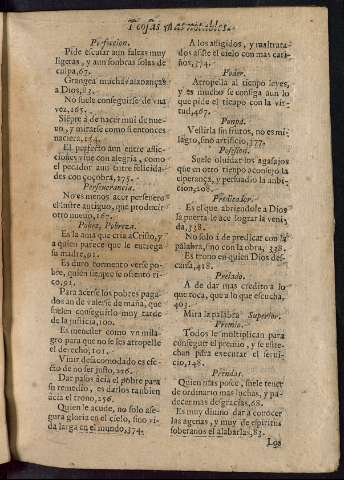 Y cosas mas notables.
Perfeccion.
Pide escusar aun faltas muy
ligeras, y aun sombras solas de
culpa, 67.
Grangea muchas alabanças
a Dios, 83.
No suele conseguirse de vna
vez, 165.
Siẽpre à de hacer mui de nue-
uo, y mirarse como si entonces
naciera, 254.
El perfecto aun entre aflic-
ciones viue con alegria, como
el pecador aun entre felicida-
des con çoçobra, 275.
Perseuerancia.
No es menos acer perseuerar
el lustre antiguo, que producir
otro nueuo, 167.
Pobre, Pobreza.
Es la ama que cria a Cristo, y
a quien parece que le entrega
su madre, 91.
Es duro tormento verse po-
bre, quien siempre se ostentò ri-
co, 91.
Para acerse los pobres paga-
dos an de valerse de maña, que
suelen conseguirlo muy tarde
de la justicia, 100.
Es menester como vn mila-
gro para que no se les atropelle
el derecho, 101.
Viuir desacomodado es efe-
cto de no ser justo, 256.
Dar palos àcia el pobre para
su remedio, es darlos tambien
àcia el trono, 256.
Quien le acude, no solo ase-
gura gloria en el cielo, sino vi-
da larga en el mundo, 374.
A los afligidos, y maltrata-
dos asiste el cielo con mas cari-
ños, 374.
Poder.
Atropella al tiempo leyes,
y es mucho se consiga aun lo
que pide el tiempo con la vir-
tud, 467.
Ponpa.
Vestirla sin frutos, no es mi-
lagro, sino artificio, 377.
Posesion.
Suele oluidar los agasajos
que en otro tiempo aconsejo la
esperança, y persuadio la anbi-
cion, 208.
Predicador.
Es el que abriendole a Dios
la puerta le ace lograr la veni-
da, 338.
No solo à de predicar con la
palabra, sino con la obra, 338.
Es trono en quien Dios des-
cansa, 418.
Prelado.
A de dar mas credito a lo
que toca, que a lo que escucha,
403.
Mira la palabra Superior.
Premio.
Todos se multiplican para
conseguir el premio, y se estre-
chan para executar el serui-
cio, 148.
Prendas.
Quien mas posee, suele tener
de ordinario mas luchas, y pa-
decer mas desgracias, 68.
Es muy diuino dar a conocer
las agenas, y muy de espiritus
soberanos el alabarlas, 83.
Las